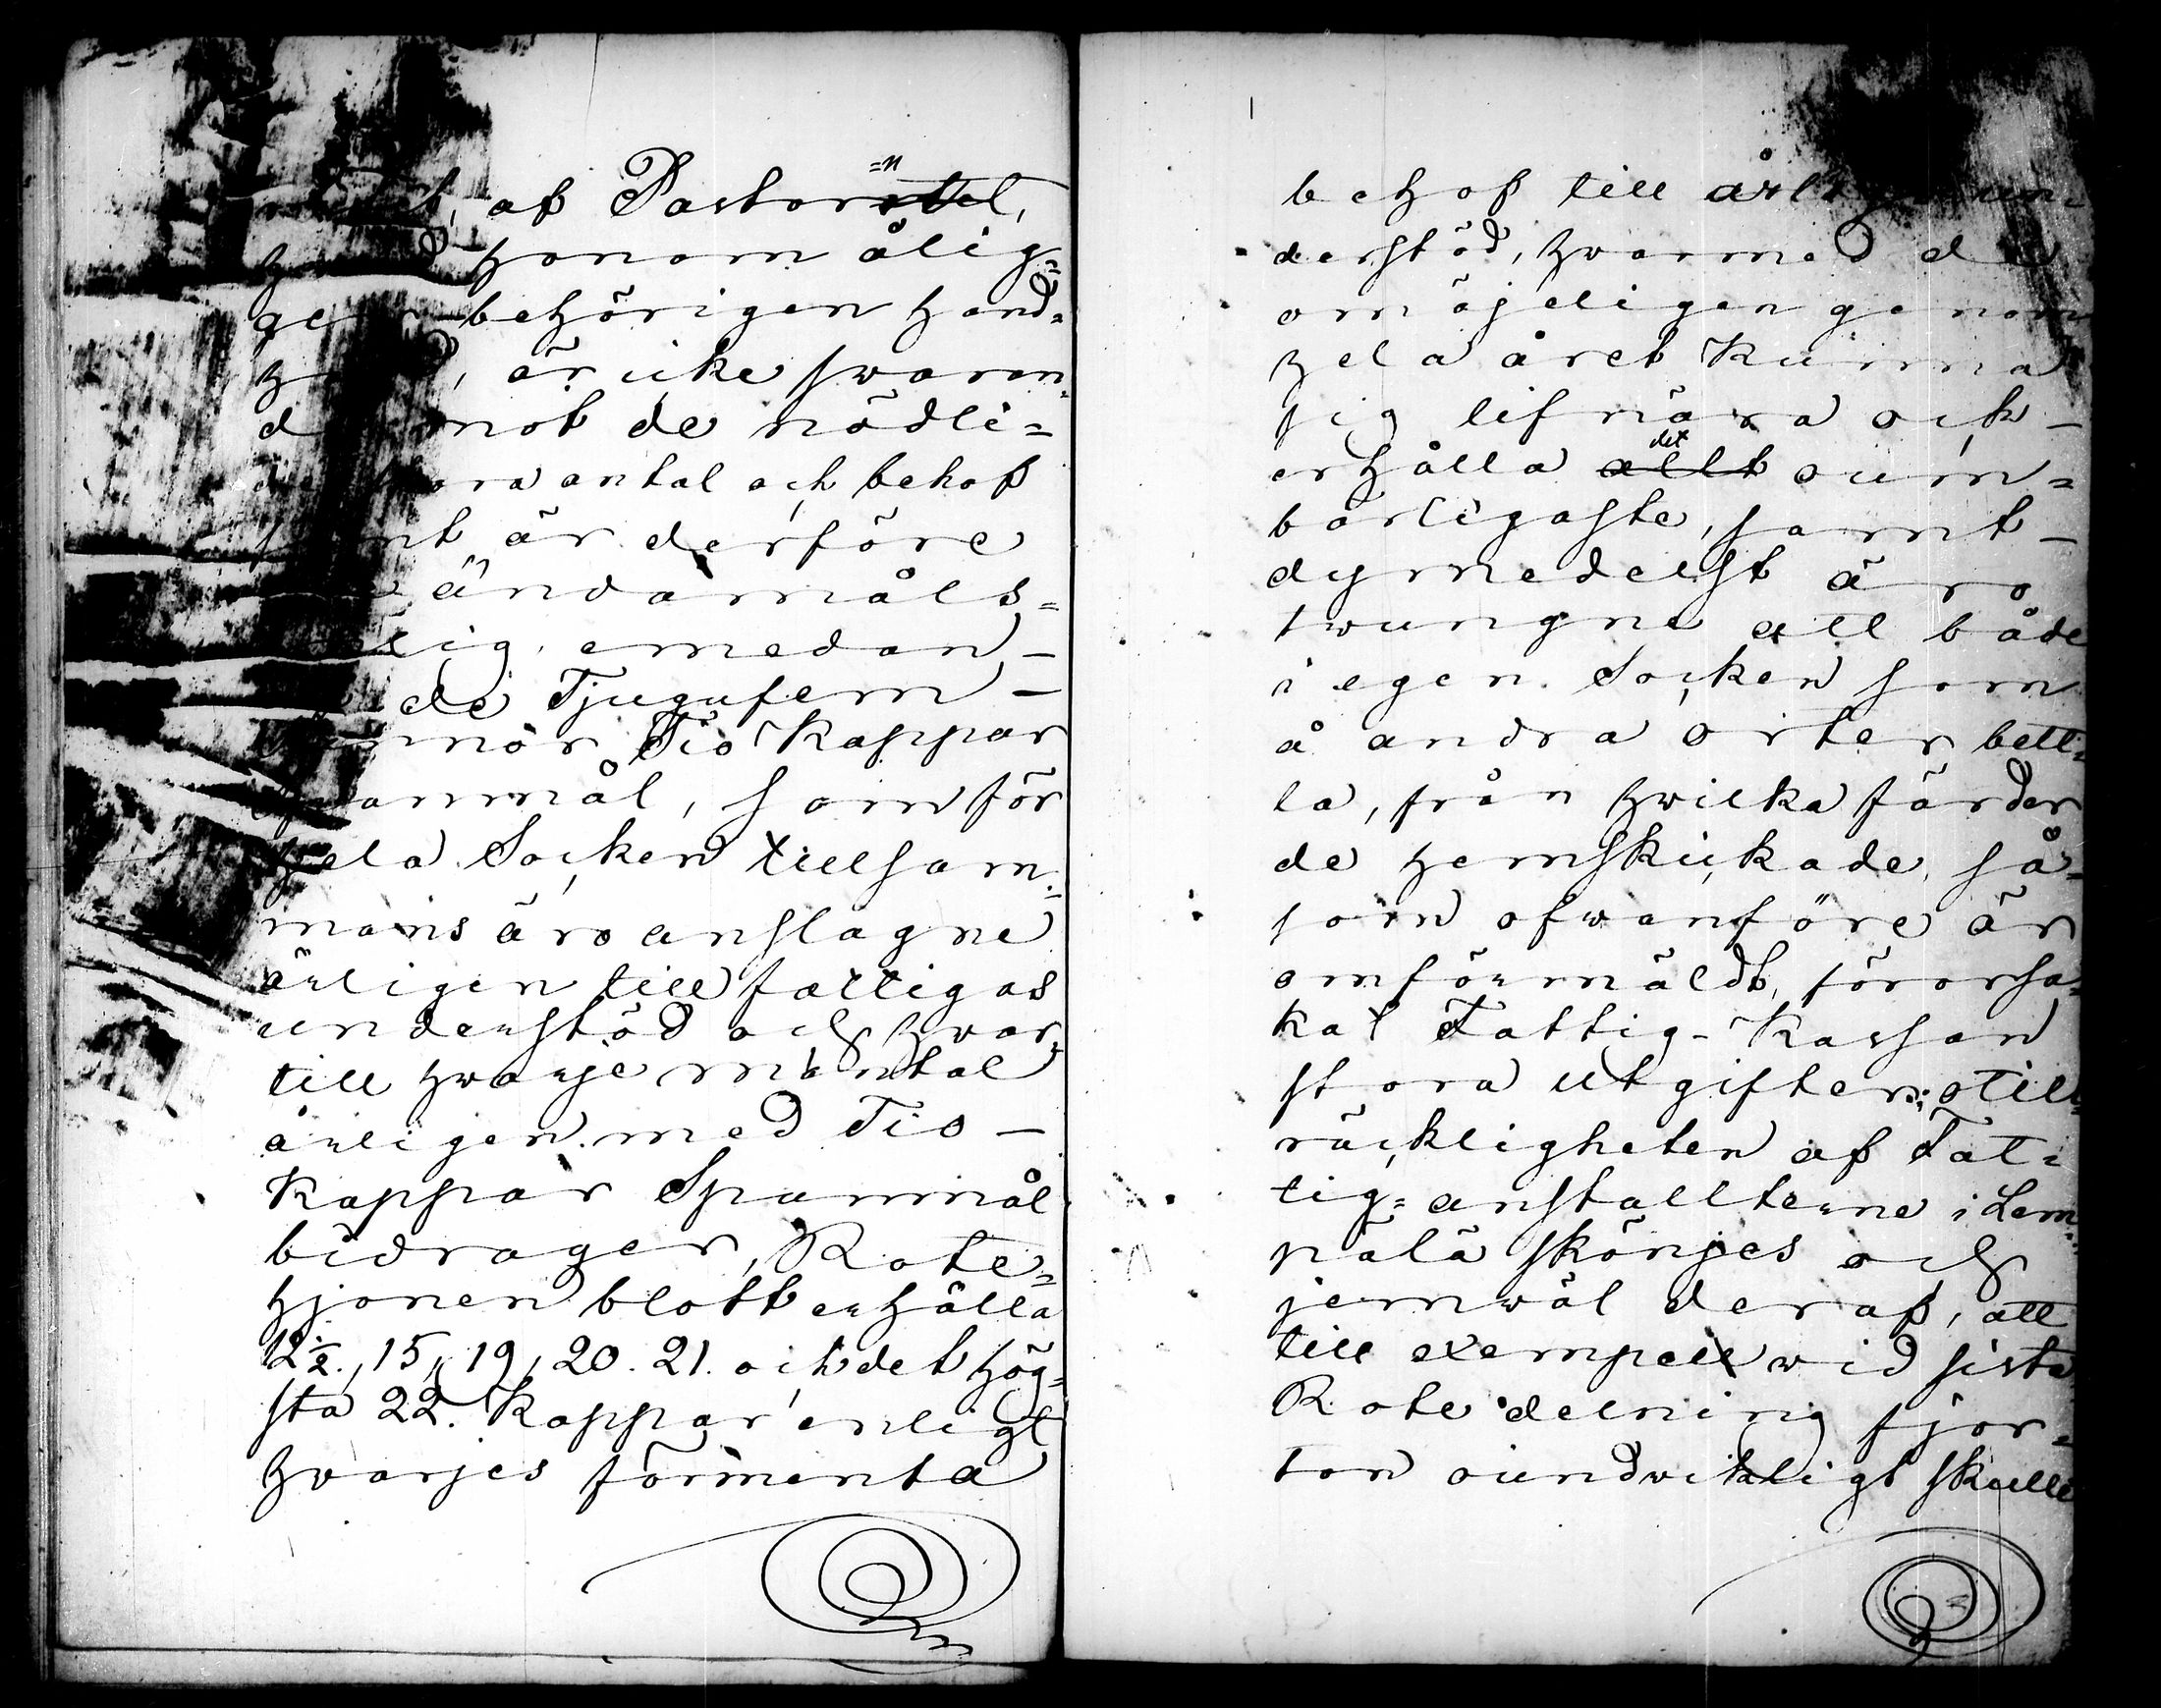 af Pastor=n,
honom ålig=
behörigen hand=
är icke swaran=
mot de nödli=
antal och behof
är derföre
ändamåls=
lig, emedan –
de Tjugufem –
Tio Kappar
spanmål, som för
hela Socken tillsam=
mans äro anslagne
årligen till fattigas
understöd och hwar=
till hwarje mantal
årligen med Tio –
Kappar Spanmål
bidrager, Rote=
hjonen blott erhålla
12½., 15, 19, 20. 21. och det hög=
sta 22. Kappar enligt
hwarjes förmenta
behof till årligt un=
derstöd, hwarmed de
omöjeligen genom
hela året kunna
sig lifnära och –
erhålla det oum=
bärligaste, samt –
dymedelst äro
twungne att både
i egen Socken som
å andra orter bett=
la, från hwilka färder
de hemskickade, så=
som ofwanföre är
omförmäldt, förorsa=
kat Fattig-Kassan
stora utgifter; otill=
räckligheten af Fat=
tig=anstallterne i Lem=
pälä skönjes och
jemwäl deraf, att
till exempel wid sista
Rotedelning fjor=
ton oundwikligt skulle